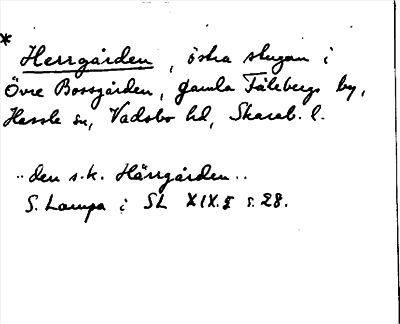 *
Herrgården, östra stugan i
Övre Bossgården, gamla Fåleberg by,
Hassle sn, Vadsbo hd, Skarab. l.
.. den s.k. Härrgården ..
S. Lampa i SL XIX.5 s. 28.